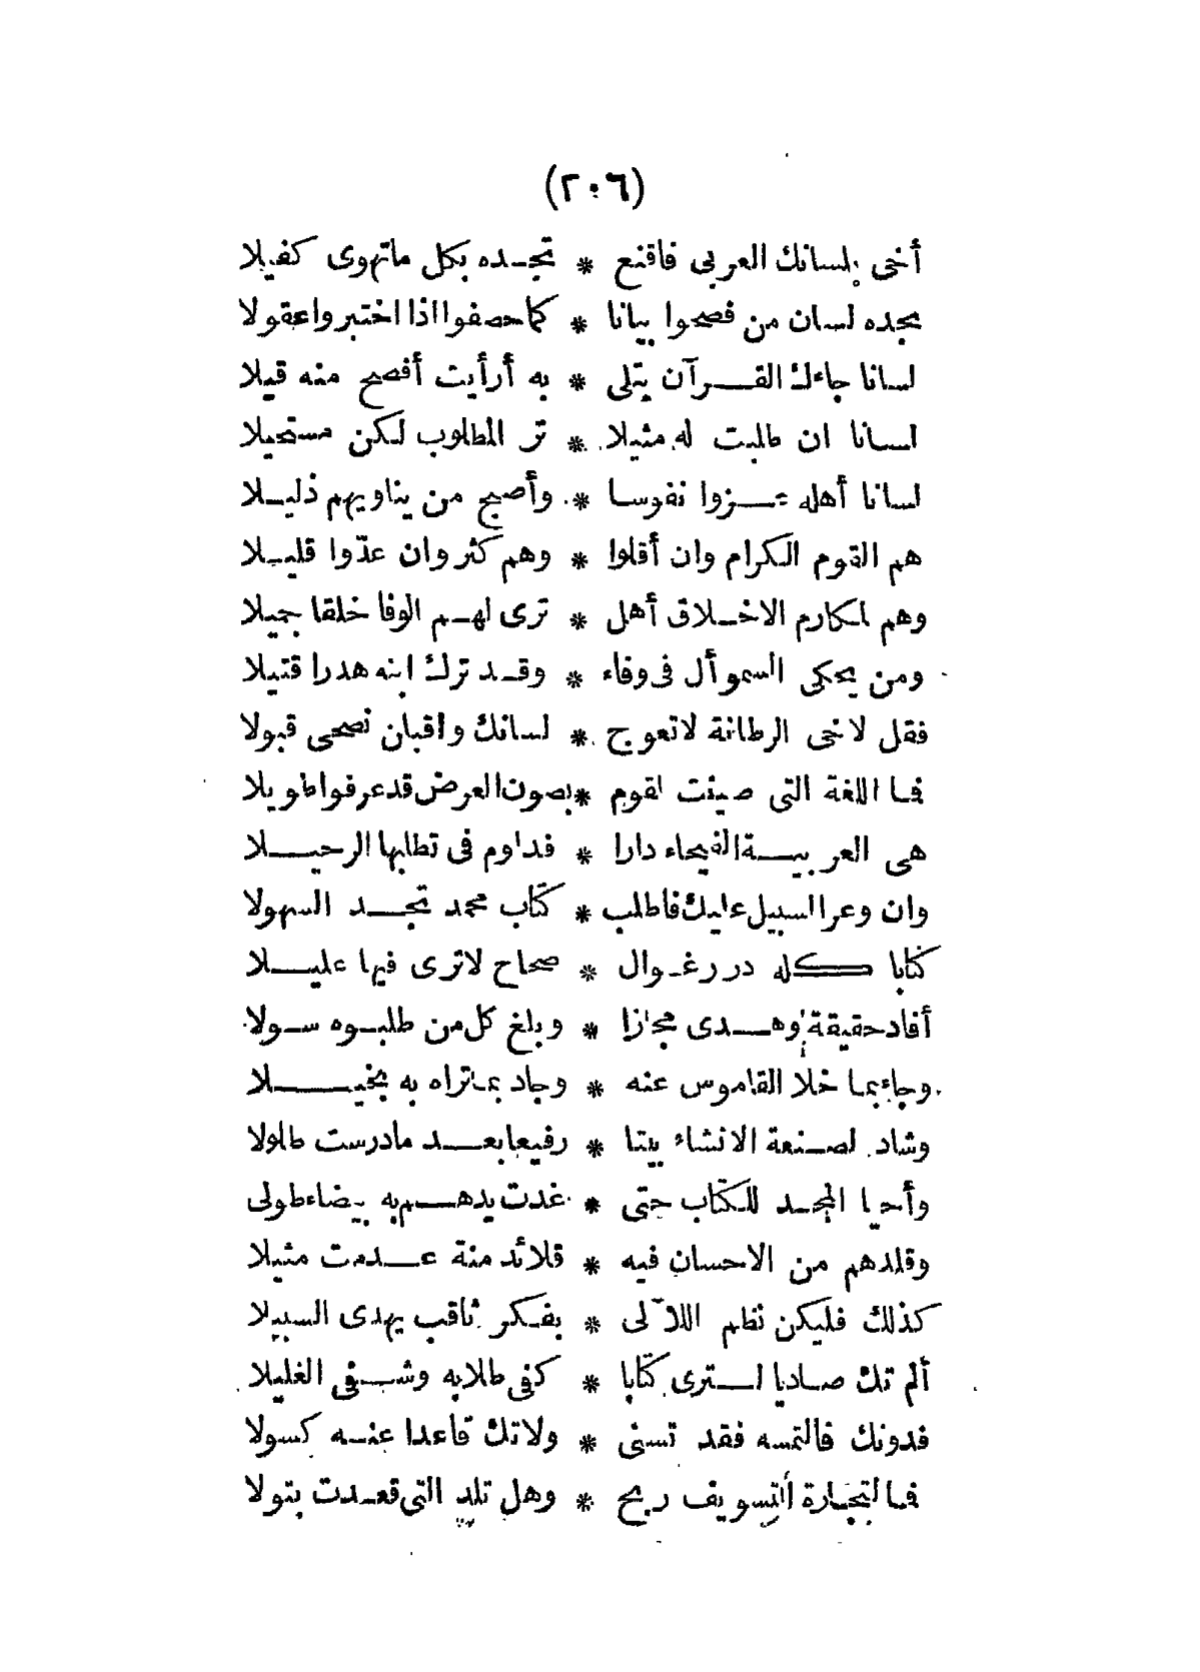 (٢٠٦)
أخى بلسانك العربى فاقنع * تجده بكل ماتهوى كفيلا
تجده لسان من فصحوا بيانا * كما حصفوا اذا اختبروا عقولا
لسانا جاءك القرآن يتلى * به أرأيت أفصح منه قيلا
لسانا ان طلبت له مثيلا * تر المطلوب لكن مستحيلا
لسانا أهله عزوا نفوسا * وأصبح من يناويهم ذليلا
هم القوم الكرام وان أقلوا * وهم كثر وان عدّوا قليلا
وهم لمكارم الاخلاق أهل * ترى لهم الوفا خلقا جميلا
ومن يحكى السموأل فى وفاء * وقد ترك ابنه هدرا قتيلا
فقل لاخى الرطانة لاتعوج * لسانك واقبلن نصحى قبولا
فما اللغة التى صينت لقوم * بصون العرض قد عرفوا طويلا
هى العربية الفيحاء دارا * فداوم فى تطلبها الرحيلا
وان وعرا السبيل عليك فاطلب * كتاب محمد تجد السهولا
كتابا كله درر غوال * صحاح لاترى فيها عليلا
أفاد حقيقة وهدى مجازا * وبلغ كل من طلبوه سولا
وجاء بما خلا القاموس عنه * وجاد بما تراه به بخيلا
وشاد لصنعة الانشاء بيتا * رفيعا بعد مادرست طلولا
وأحيا المجد للكتاب حتى * غدت يدهم به بيضاء طولى
وقلدهم من الاحسان فيه * قلائد منة عدمت مثيلا
كذلك فليكن نظم اللآلى * بفكر ثاقب يهدى السبيلا
ألم تك صاديا لترى كتابا * كفى طلابه وشفى الغليلا
فدونك فالتمسه فقد تسنى * ولاتك قاعدا عنه كسولا
فما لتجارة التسويف ربح * وهل تلد التى قعدت بتولا